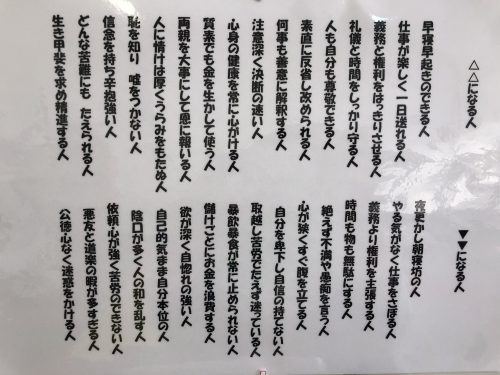 △△になる人
早寝早起きのできる人
仕事が楽しく一日送れる人
義務と権利をはっきりさせる人
礼儀と時間をしっかり守る人
人も自分も尊敬できる人
素直に反省し改められる人
何事も善意に解釈する人
注意深く決断の速い人
心身の健康を常に心がける人
質素でも金を生かして使う人
両親を大事にして恩に報いる人
人に情けは厚くうらみをもたぬ人
恥を知り 嘘をつかない人
信念を持ち辛抱強い人
どんな苦難にも たえられる人
生き甲斐を求め精進する人
▼▼になる人
夜更かし朝寝坊の人
やる気がなく仕事をさぼる人
義務より権利を主張する人
時間も物も無駄にする人
絶えず不満や愚痴を言う人
心が狭くすぐ腹を立てる人
自分を卑下し自信の持てない人
取越し苦労でたえず迷っている人
暴飲暴食が常に止められない人
儲けごとにお金を浪費する人
欲が深く自惚れの強い人
自己的気まま自分本位の人
陰口が多く人の和を乱す人
依頼心が強く苦労のできない人
悪友と道楽の暇が多すぎる人
公徳心なく迷惑をかける人